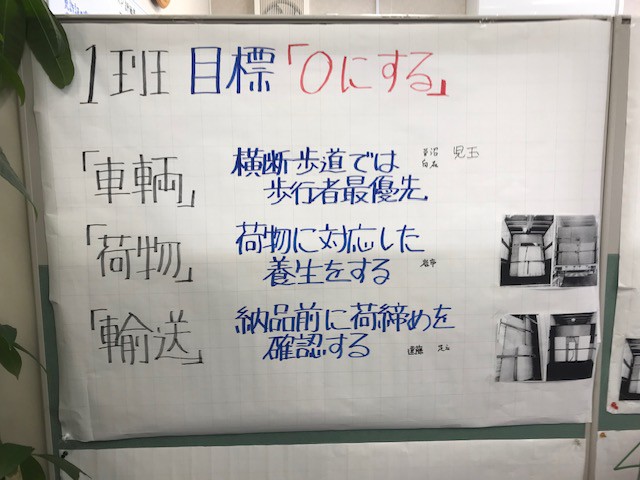 1班 目標「0にする」
「車輌」
横断歩道では
歩行者最優先
児玉
「荷物」
荷物に対応した
養生をする
「輸送」
納品前に荷締めを
確認する
遠藤